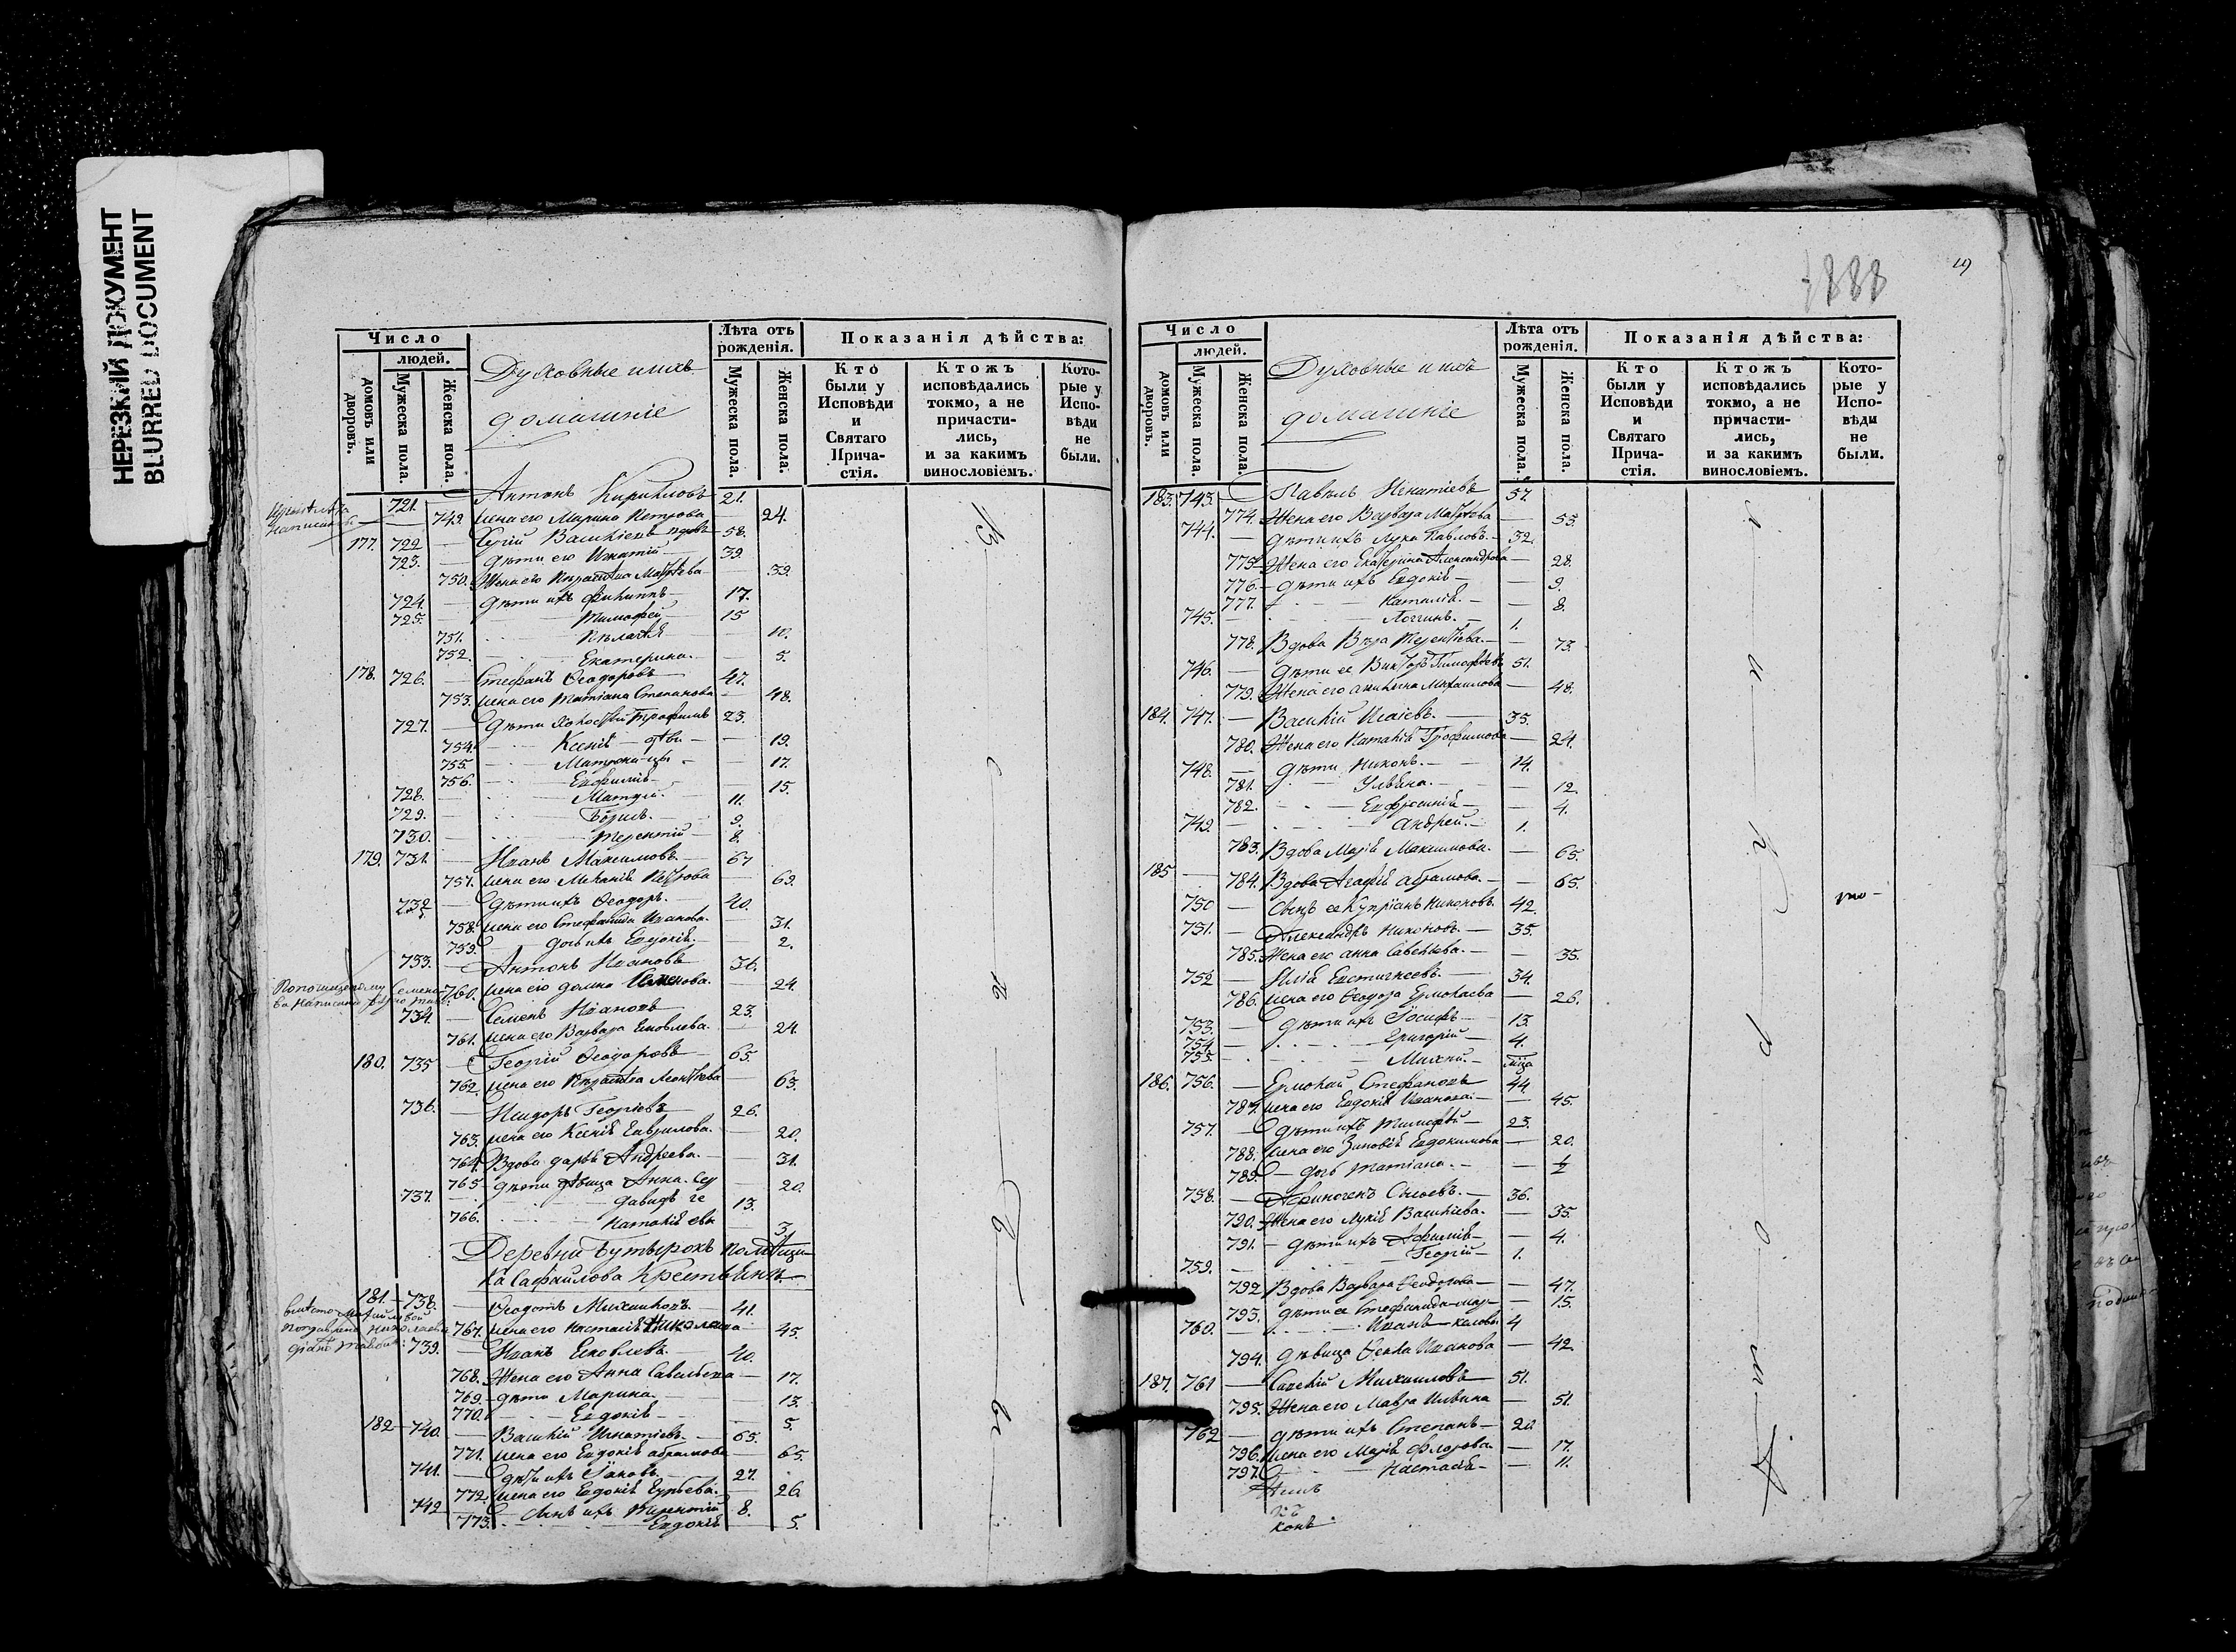 НЕРЕЗКИЙ ДОКУМЕНТ
BLURRED DOCUMENT
Число
людей.
домовъ или дворовъ.
Мужеска пола.
Женска пола.
Духовные и ихъ
домашніе
Лѣта отъ рожденія.
Мужеска пола.
Женска пола.
Показанія дѣйства:
Кто были у Исповѣди и Святаго Прича-стія.
Ктожъ исповѣдались токмо, а не причасти-лись, и за какимъ винословіемъ.
Кото-рые у Испо-вѣди не были.
721. Антонъ Кириловъ 21.
749. жена его Марина Петрова 24.
177. 722 Сергій Васильевъ вдовъ 58.
723. дѣти его Игнатій 39.
750. Жена его Матѳѣева 39.
724. дѣти ихъ Филиппъ 17.
725. Тимофей 15
751. Пелагія 10.
752. Екатерина 5.
178. 726. Стефанъ Ѳеодоровъ 47.
753. жена его Татіана Степанова 48.
727. Дѣти холостый Трофимъ 23.
754. Ксенія дѣви 19.
755. Матрона цы 17.
756. Евфимія 15.
728. Матѳей 11.
729. Борисъ 9.
730. Терентій 8.
179. 731. Иванъ Максимовъ 67
757. жена его Меланія Петрова 69.
732 Дѣти ихъ Ѳеодоръ 40.
758. жена его Стефанида Иванова 31.
759. дочь ихъ Евдокія 2.
733. Антонъ Ивановъ 36.
760. жена его Домна Семенова 24.
734. Семенъ Ивановъ 23.
761. жена его Варвара Яковлева 24.
180. 735 Георгій Ѳеодоровъ 65.
762. жена его Леонтьева 63.
736. Исидоръ Георгіевъ 26.
763. жена его Ксенія Гаврилова 20.
764. Вдова Дарья Андреева 31.
765. дѣти дѣвица Анна 20.
737. Давидъ 13.
766. Наталія 3.
Деревни Бутырокъ помѣщи-
ка Сафайлова Крестьянъ
181. 738. Ѳеодотъ Михайловъ 41.
767. жена его Настасія Николаева 45.
739. Иванъ Яковлевъ 40.
768. Жена его Анна Савельева 17.
769. дѣти Марина 13.
770. Евдокія 5.
182 740. Василій Игнатіевъ 65.
771. жена его Евдокія Абрамова 65.
741. дѣти ихъ Іаковъ 27.
772. жена его Евдокія Гурьева 26.
742 сынъ ихъ Терентій 8.
773. Евдокія 5.
1888
Число
людей.
домовъ или дворовъ.
Мужеска пола.
Женска пола.
Духовные и ихъ
домашніе
Лѣта отъ рожденія.
Мужеска пола.
Женска пола.
Показанія дѣйства:
Кто были у Исповѣди и Святаго Прича-стія.
Ктожъ исповѣдались токмо, а не причасти-лись, и за какимъ винословіемъ.
Кото-рые у Испо-вѣди не были.
183. 743. Павелъ Игнатіевъ 57.
774. Жена его Варвара Матѳѣева 55.
744. дѣти ихъ Лука Павловъ 32.
775. Жена его Екатерина Александрова 28.
776. дѣти ихъ Евдокія 9.
777. Наталія 8.
745. Логинъ 1.
778. Вдова Вѣра Терентьева 73.
746. дѣти ее Викторъ Тимофѣевъ 51.
779. Жена его Акилина Михаилова 48.
184. 747. Василій Исаіевъ 35.
780. Жена его Наталія Трофимова 24.
748. дѣти Никонъ 14.
781. Ульяна 12.
782. Евфросинія 4.
749. Андрей 1.
783. Вдова Марія Максимова 65.
185 784. Вдова Агафія Абрамова 65.
750 Сынъ ее Купріанъ Никоновъ 42.
751. Александръ Никоновъ 35.
785. Жена его Анна Савельева 35.
752 Илія Евстигнеевъ 34.
786. жена его Ѳеодора Ермолаева 26.
753. дѣти ихъ Іосифъ 13.
754 Григорій 4.
755.
186. 756. Ермолай Стефановъ 44.
787. жена его Евдокія Иванова 45.
757. дѣти ихъ Тимофей 23.
788. жена его Зиновія Евдокимова 20.
789. дочь Татіана ½
758. Афиногенъ Сысоевъ 36.
790. Жена его Лукія Васильева 35.
791. дѣти ихъ Афимія 4.
759. Георгій 1.
792 Вдова Варвара Ѳеодорова 47.
793. дѣти ее Стефанида 15.
760. Иванъ 4
794. дѣвица Ѳекла Иванова 42.
187. 761 Савелій Михаиловъ 51.
795. Жена его Мавра Ильина 51.
762 дѣти ихъ Степанъ 20.
796. жена его Марія Флорова 17.
797. Настасія 11.